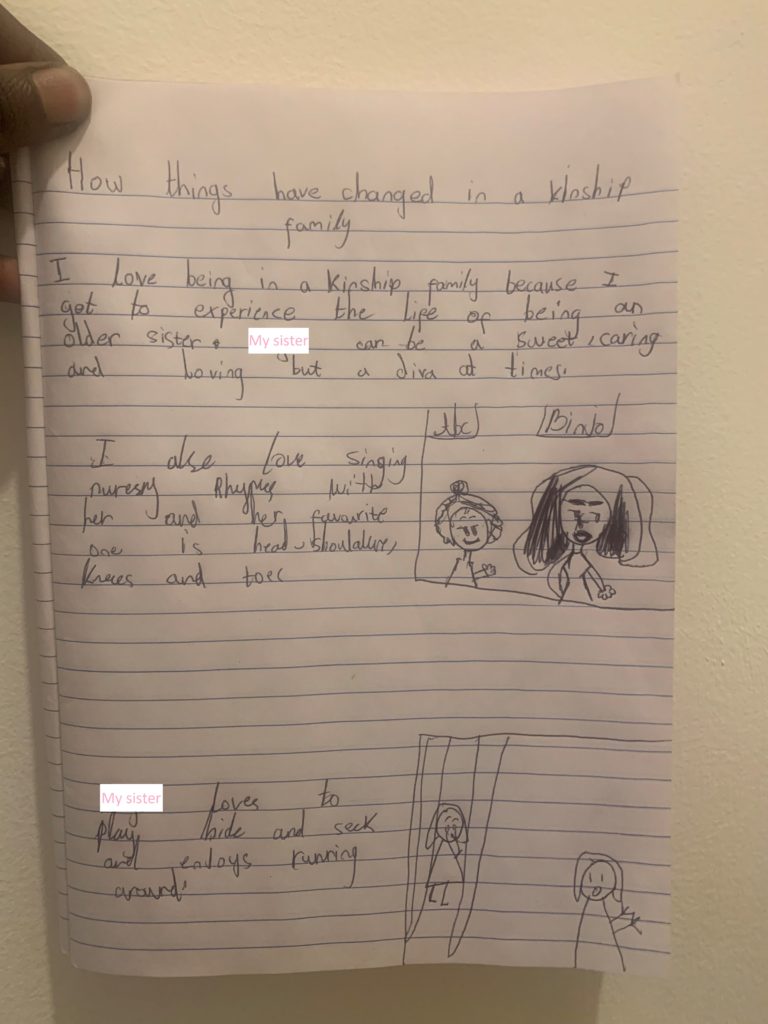 How things have changed in a kinship
family
I Love being in a kinship family because I
get to experience the life of being an
older sister. My sister can be a sweet, caring
and Loving but a diva at times.
Abc Binlo
I alse Love singing
nuresry Rhymes with
her and her favourite
one is head, shoulalure,
knees and toes
My sister Loves to
play hide and seek
and enjoys running
around.